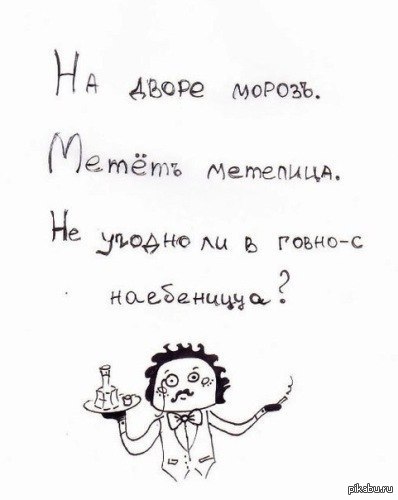 На дворе морозъ.
Метётъ метелица.
Не угодно ли в говно-с
наебеницца?
pikabu.ru